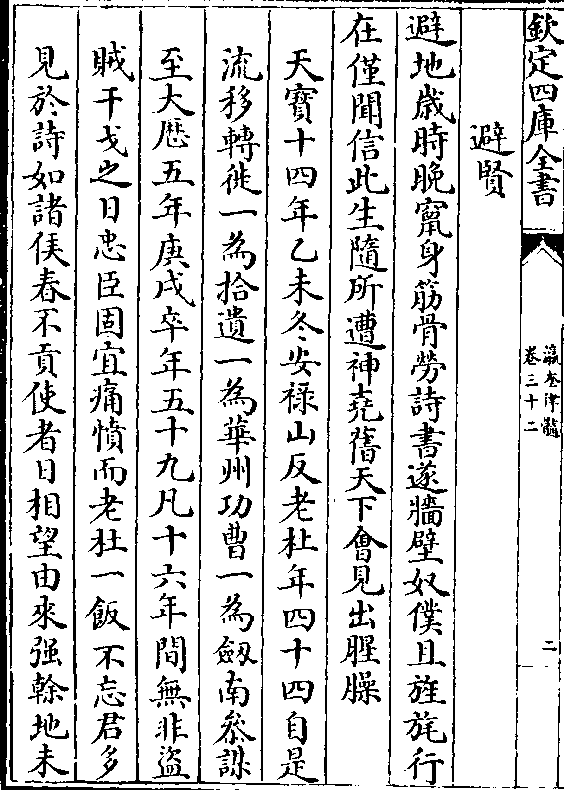 欽定四庫全書
瀛奎律髓
卷三十二
二
避賢
避地歲時晚竄身筋骨勞詩書遂牆壁奴僕且旌旄行
在僅聞信此生隨所遭神堯舊天下會見出腥臊
天寳十四年乙未冬安祿山反老杜年四十四自是
流移轉徙一為拾遺一為華州功曹一為劔南叅謀
至大厯五年庚戌卒年五十九凡十六年間無非盜
賊干戈之日忠臣固宜痛憤而老杜一飯不忘君多
見於詩如諸侯春不貢使者日相望由來强幹地未